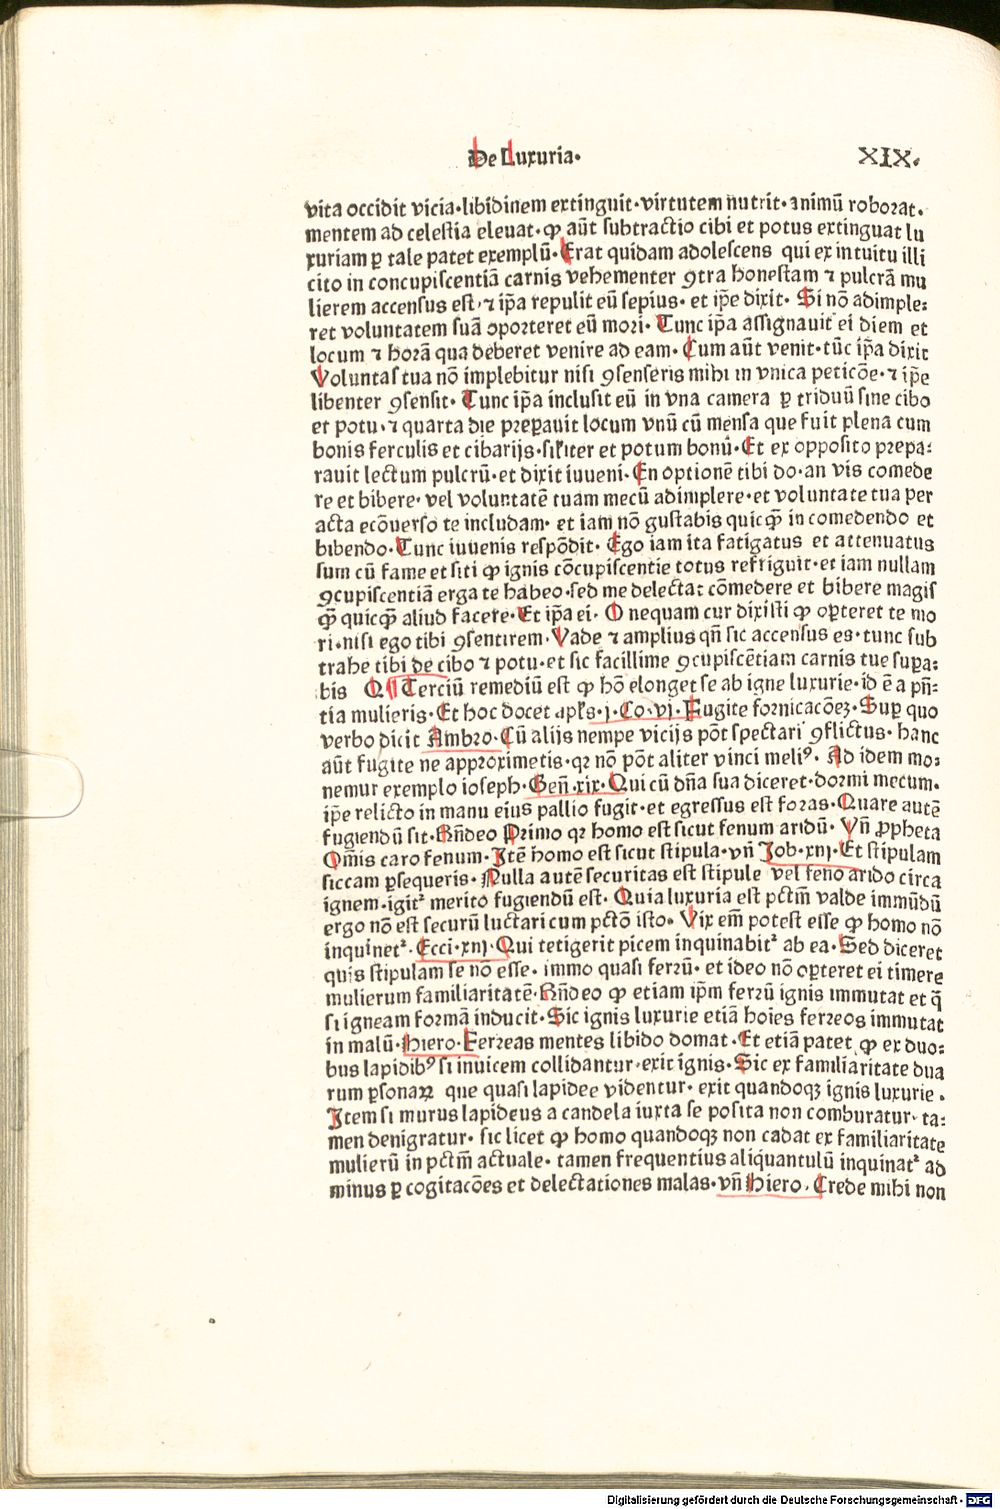 De Luxuria·
XIX.
vita occidit vicia·libidinem extinguit·virtutem nutrit·animū roborat.
mentem ad celestia eleuat·ꝙ aūt subtractio cibi et potus extinguat lu
xuriam ꝑ tale patet exemplū·Erat quidam adolescens qui ex intuitu illi
cito in concupiscentiā carnis vehementer ꝯtra honestam ⁊ pulcrā mu
lierem accensus est·⁊ ip̄a repulit eū sepius· et ip̄e dixit· Si nō adimple⸗
ret voluntatem suā oporteret eū mori· Tunc ip̄a assignauit ei diem et
locum ⁊ horā qua deberet venire ad eam· Cum aūt venit·tūc ip̄a dixit
Voluntas tua nō implebitur nisi ꝯsenseris mihi in vnica peticōe·⁊ ip̄e
libenter ꝯsensit· Tunc ip̄a inclusit eū in vna camera ꝑ triduū sine cibo
et potu·⁊ quarta die preꝑauit locum vnū cū mensa que fuit plena cum
bonis ferculis et cibarijs·sil̄iter et potum bonū·Et ex opposito prepa⸗
rauit lectum pulcrū·et dixit iuueni·En optionē tibi do·an vis comede
re et bibere· vel voluntatē tuam mecū adimplere·et voluntate tua per
acta ecōuerso te includam· et iam nō gustabis quicꝙ̄ in comedendo et
bibendo·Tunc iuuenis respōdit· Ego iam ita fatigatus et attenuatus
sum cū fame et siti ꝙ ignis cōcupiscentie totus refriguit·et iam nullam
ꝯcupiscentiā erga te habeo·sed me delectat cōmedere et bibere magis
ꝙ̄ quicꝙ̄ aliud facere·Et ip̄a ei· O nequam cur dixisti ꝙ oꝑteret te mo
ri·nisi ego tibi ꝯsentirem·Vade ⁊ amplius qn̄ sic accensus es·tunc sub
trahe tibi de cibo ⁊ potu·et sic facillime ꝯcupiscētiam carnis tue suꝑa⸗
bis Q ¶ Terciū remediū est ꝙ hō elonget se ab igne luxurie·id ē a pn̄⸗
tia mulieris·Et hoc docet apl̄s·j·Co·vj·Fugite fornicacōeȝ·Suꝑ quo
verbo dicit Ambro·Cū alijs nempe vicijs pōt spectari ꝯflictus· hanc
aūt fugite ne approximetis·qꝛ nō pōt aliter vinci meliꝰ· Ad idem mo⸗
nemur exemplo ioseph·Gen̄·xix·Qui cū dn̄a sua diceret·dormi mecum·
ip̄e relicto in manu eius pallio fugit·et egressus est foras·Quare autē
fugiendū sit·Rn̄deo Primo qꝛ homo est sicut fenum aridū· Vn̄ ꝓpheta
Om̄is caro fenum·Itē homo est sicut stipula·vn̄ Job·xiij·Et stipulam
siccam ꝑsequeris·Nulla autē securitas est stipule vel feno arido circa
ignem·igitᷣ merito fugiendū est· Quia luxuria est pctm̄ valde immūdū
ergo nō est securū luctari cum pctō isto· Vix em̄ potest esse ꝙ homo nō
inquinetᷣ·Ecci·xiij·Qui tetigerit picem inquinabitᷣ ab ea·Sed diceret
quis stipulam se nō esse· immo quasi ferrū· et ideo nō oꝑteret ei timere
mulierum familiaritatē·Rn̄deo ꝙ etiam ip̄m ferrū ignis immutat et q̄
si igneam formā inducit·Sic ignis luxurie etiā hoīes ferreos immutat
in malū·Hiero·Ferreas mentes libido domat·Et etiā patet ꝙ ex duo⸗
bus lapidibꝰ si inuicem collidantur·exit ignis·Sic ex familiaritate dua
rum ꝑsonaꝝ que quasi lapidee videntur· exit quandoqȝ ignis luxurie·
Item si murus lapideus a candela iuxta se posita non comburatur· ta⸗
men denigratur· sic licet ꝙ homo quandoqȝ non cadat ex familiaritate
mulierū in pctm̄ actuale· tamen frequentius aliquantulū inquinatᷣ ad
minus ꝑ cogitacōes et delectationes malas·vn̄ Hiero·Crede mihi non
Digitalisierung gefördert durch die Deutsche Forschungsgemeinschaft - DFG